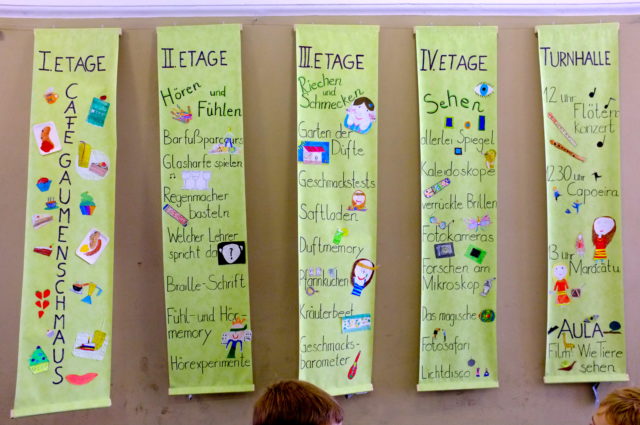 I. ETAGE
CAFE GAUMENSCHMAUS
II. ETAGE
Hören und
Fühlen
Barfußparcours
Glasharfe spielen
Regenmacher
basteln
Welcher Lehrer
spricht da
Braille-Schrift
Fühl- und Hör-
memory
Hörexperimente
III. ETAGE
Riechen
und
Schmecken
Garten der
Düfte
Geschmackstests
Saftladen
Duftmemory
Pfannkuchen
Kräuterbeet
Geschmacks-
barometer
IV. ETAGE
Sehen
allerlei Spiegel
Kaleidoskope
verrückte Brillen
Fotokameras
Forschen am
Mikroskop
Das magische
Fotosafari
Lichtdisco
TURNHALLE
12 Uhr
Flöten
konzert
12.30 Uhr
Capoeira
13 Uhr
Maracatu
AULA
Film „Wie Tiere
sehen